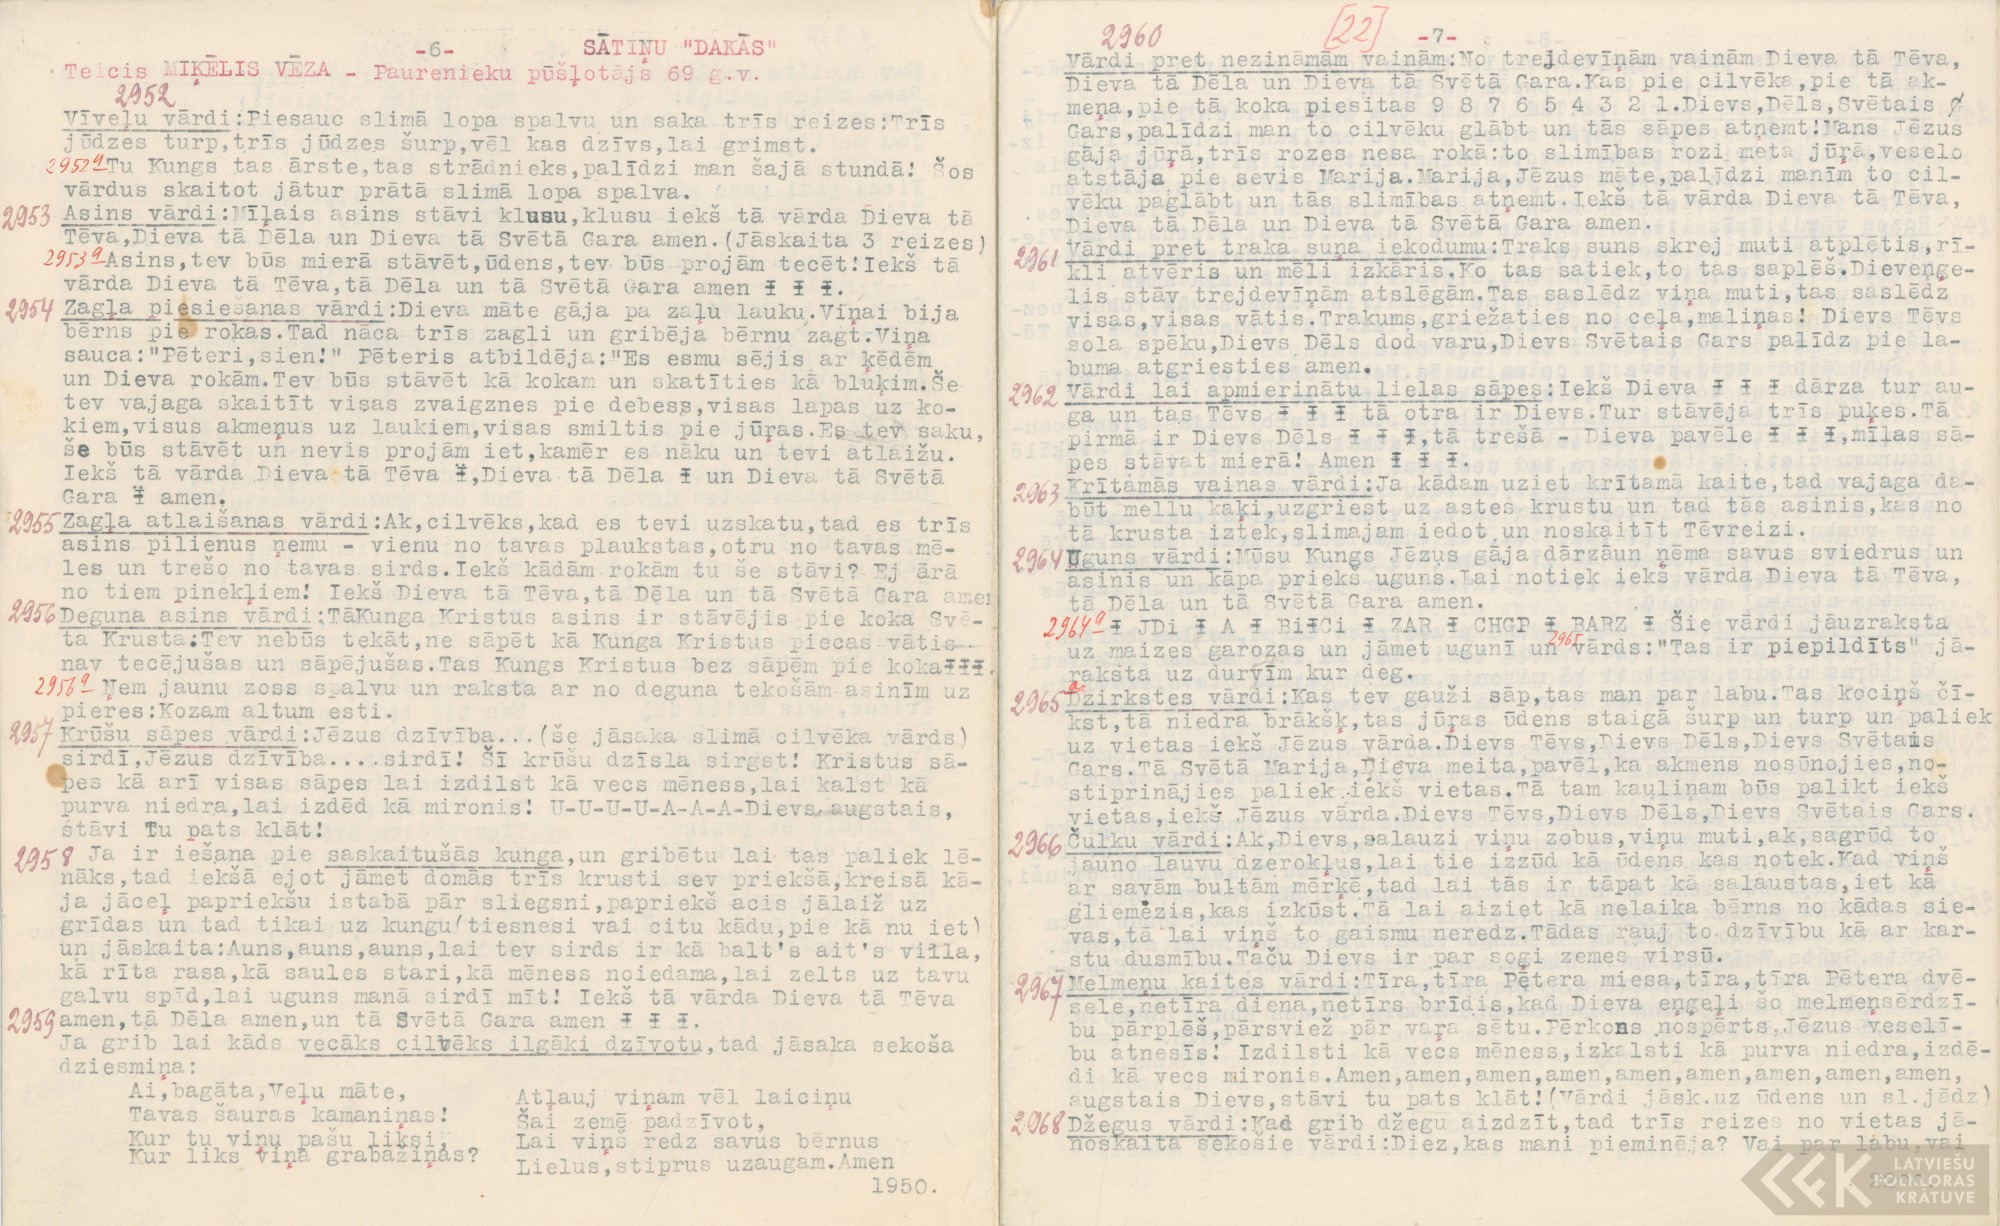 -6- SĀTIŅU "DAKĀS"
Teicis MIĶĒLIS VĒZA - Paurenieku pūšļotājs 69 g.v.
2952
Vīveļu vārdi:Piesauc slimā lopa spalvu un saka trīs reizes:Trīs
jūdzes turp,trīs jūdzes šurp,vēl kas dzīvs,lai grimst.
2952a Tu Kungs tas ārste,tas strādnieks,palīdzi man šajā stundā! Šos
vārdus skaitot jātur prātā slimā lopa spalva.
2953 Asins vārdi:Mīļais asins stāvi klusu,klusu iekš tā vārda Dieva tā
Tēva,Dieva tā Dēla un Dieva tā Svētā Gara amen.(Jāskaita 3 reizes)
2953a Asins,tev būs mierā stāvēt,ūdens,tev būs projām tecēt!Iekš tā
vārda Dieva tā Tēva,tā Dēla un tā Svētā Gara amen ‡ ‡ ‡.
2954 Zagļa piesiešanas vārdi:Dieva māte gāja pa zaļu lauku.Viņai bija
bērns pie rokas.Tad nāca trīs zagli un gribēja bērnu zagt.Viņa
sauca:"Pēteri,sien!" Pēteris atbildēja:"Es esmu sējis ar ķēdēm
un Dieva rokām.Tev būs stāvēt kā kokam un skatīties kā bluķim.Še
tev vajaga skaitīt visas zvaigznes pie debess,visas lapas uz ko-
kiem,visus akmeņus uz laukiem,visas smiltis pie jūras.Es tev saku,
še būs stāvēt un nevis projām iet,kamēr es nāku un tevi atlaižu.
Iekš tā vārda Dieva tā Tēva ‡,Dieva tā Dēla ‡ un Dieva tā Svētā
Gara ‡ amen.
2955 Zagļa atlaišanas vārdi:Ak,cilvēks,kad es tevi uzskatu,tad es trīs
asins pilienus ņemu - vienu no tavas plaukstas,otru no tavas mē-
les un trešo no tavas sirds.Iekš kādām rokām tu še stāvi? Ej ārā
no tiem pinekļiem! Iekš Dieva tā Tēva,tā Dēla un tā Svētā Gara amen
2956 Deguna asins vārdi:TāKunga Kristus asins ir stāvējis pie koka Svē-
ta Krusta:Tev nebūs tekāt,ne sāpēt kā Kunga Kristus piecas vātis
nav tecējušas un sāpējušas.Tas Kungs Kristus bez sāpēm pie koka‡‡‡.
2956a Ņem jaunu zoss spalvu un raksta ar no deguna tekošām asinīm uz
pieres:Kozam altum esti.
2957 Krūšu sāpes vārdi:Jēzus dzīvība...(še jāsaka slimā cilvēka vārds)
sirdī,Jēzus dzīvība....sirdī! Šī krūšu dzīsla sirgst! Kristus sā-
pes kā arī visas sāpes lai izdilst kā vecs mēness,lai kalst kā
purva niedra,lai izdēd kā mironis! U-U-U-U-A-A-A-Dievs augstais,
stāvi Tu pats klāt!
2958 Ja ir iešana pie saskaitušās kunga,un gribētu lai tas paliek lē-
nāks,tad iekšā ejot jāmet domās trīs krusti sev priekšā,kreisā kā-
ja jāceļ papriekšu istabā pār sliegsni,papriekš acis jālaiž uz
grīdas un tad tikai uz kungu(tiesnesi vai citu kādu,pie kā nu iet)
un jāskaita:Auns,auns,auns,lai tev sirds ir kā balt's ait's villa,
kā rīta rasa,kā saules stari,kā mēness noiedama,lai zelts uz tavu
galvu spīd,lai uguns manā sirdī mīt! Iekš tā vārda Dieva tā Tēva
amen,tā Dēla amen,un tā Svētā Gara amen ‡ ‡ ‡.
2959
Ja grib lai kāds vecāks cilvēks ilgāki dzīvotu,tad jāsaka sekoša
dziesmiņa:
Ai,bagāta,Veļu māte,
Tavas šauras kamaniņas!
Kur tu viņu pašu liksi,
Kur liks viņa grabažiņas?
Atļauj viņam vēl laiciņu
Šai zemē padzīvot,
Lai viņš redz savus bērnus
Lielus,stiprus uzaugam.Amen
1950.
2960 [22] -7-
Vārdi pret nezināmām vainām:No trejdeviņām vainām Dieva tā Tēva,
Dieva tā Dēla un Dieva tā Svētā Gara.Kas pie cilvēka,pie tā ak-
meņa,pie tā koka piesitas 9 8 7 6 5 4 3 2 1.Dievs,Dēls,Svētais
Gars,palīdzi man to cilvēku glābt un tās sāpes atņemt!Mans Jēzus
gāja jūrā,trīs rozes nesa rokā:to slimības rozi meta jūrā,veselo
atstāja pie sevis Marija.Marija,Jēzus māte,palīdzi manīm to cil-
vēku paglābt un tās slimības atņemt.Iekš tā vārda Dieva tā Tēva,
Dieva tā Dēla un Dieva tā Svētā Gara amen.
2961 Vārdi pret traka suņa iekodumu:Traks suns skrej muti atplētis,rī-
kli atvēris un mēli izkāris.Ko tas satiek,to tas saplēš.Dieveņģe-
lis stāv trejdeviņām atslēgām.Tas saslēdz viņa muti,tas saslēdz
visas,visas vātis.Trakums,griežaties no ceļa,maliņas! Dievs Tēvs
sola spēku,Dievs Dēls dod varu,Dievs Svētais Gars palīdz pie la-
buma atgriesties amen.
2962 Vārdi lai apmierinātu lielas sāpes:Iekš Dieva ‡ ‡ ‡ dārza tur au-
ga un tas Tēvs ‡ ‡ ‡ tā otra ir Dievs.Tur stāvēja trīs puķes.Tā
pirmā ir Dievs Dēls ‡ ‡ ‡,tā trešā - Dieva pavēle ‡ ‡ ‡,mīļas sā-
pes stāvat mierā! Amen ‡ ‡ ‡.
2963 Krītamās vainas vārdi:Ja kādam uziet krītamā kaite,tad vajaga da-
būt mellu kaķi,uzgriest uz astes krustu un tad tās asinis,kas no
tā krusta iztek,slimajam iedot un noskaitīt Tēvreizi.
2964 Uguns vārdi:Mūsu Kungs Jēzus gāja dārzāun ņēma savus sviedrus un
asinis un kāpa prieks uguns.Lai notiek iekš vārda Dieva tā Tēva,
tā Dēla un tā Svētā Gara amen.
2964a ‡ JDi ‡ A ‡ Bi‡Ci ‡ ZAR ‡ CHGP ‡ BARZ ‡ Šie vārdi jāuzraksta
uz maizes garozas un jāmet ugunī un 2965 vārds:"Tas ir piepildīts" jā-
raksta uz durvīm kur deg.
2965a Dzirkstes vārdi:Kas tev gauži sāp,tas man par labu.Tas kociņš čī-
kst,tā niedra brākšķ,tas jūras ūdens staigā šurp un turp un paliek
uz vietas iekš Jēzus vārda.Dievs Tēvs,Dievs Dēls,Dievs Svētais
Gars.Tā Svētā Marija,Dieva meita,pavēl,ka akmens nosūnojies,no-
stiprinājies paliek iekš vietas.Tā tam kauliņam būs palikt iekš
vietas,iekš Jēzus vārda.Dievs Tēvs,Dievs Dēls,Dievs Svētais Gars.
2966 Čulku vārdi:Ak,Dievs,salauzi viņu zobus,viņu muti,ak,sagrūd to
jauno lauvu dzerokļus,lai tie izzūd kā ūdens kas notek.Kad viņš
ar savām bultām mērķē,tad lai tās ir tāpat kā salaustas,iet kā
gliemēzis,kas izkūst.Tā lai aiziet kā nelaika bērns no kādas sie-
vas,tā lai viņš to gaismu neredz.Tādas rauj to dzīvību kā ar kar-
stu dusmību.Taču Dievs ir par soģi zemes virsū.
2967 Melmeņu kaites vārdi:Tīra,tīra Pētera miesa,tīra,tīra Pētera dvē-
sele,netīra diena,netīrs brīdis,kad Dieva eņģeļi šo melmeņsērdzī-
bu pārplēš,pārsviež pār vaŗa sētu.Pērkons nospērts,Jēzus veselī-
bu atnesīs! Izdilsti kā vecs mēness,izkalsti kā purva niedra,izdē-
di kā vecs mironis.Amen,amen,amen,amen,amen,amen,amen,amen,amen,
augstais Dievs,stāvi tu pats klāt!(Vārdi jāsk.uz ūdens un sl.jādz)
2968 Džegus vārdi:Kad grib džegu aizdzīt,tad trīs reizes no vietas jā-
noskaita sekošie vārdi:Diez,kas mani pieminēja? Vai par labu,vai
LATVIEŠU
FOLKLORAS
KRĀTUVE